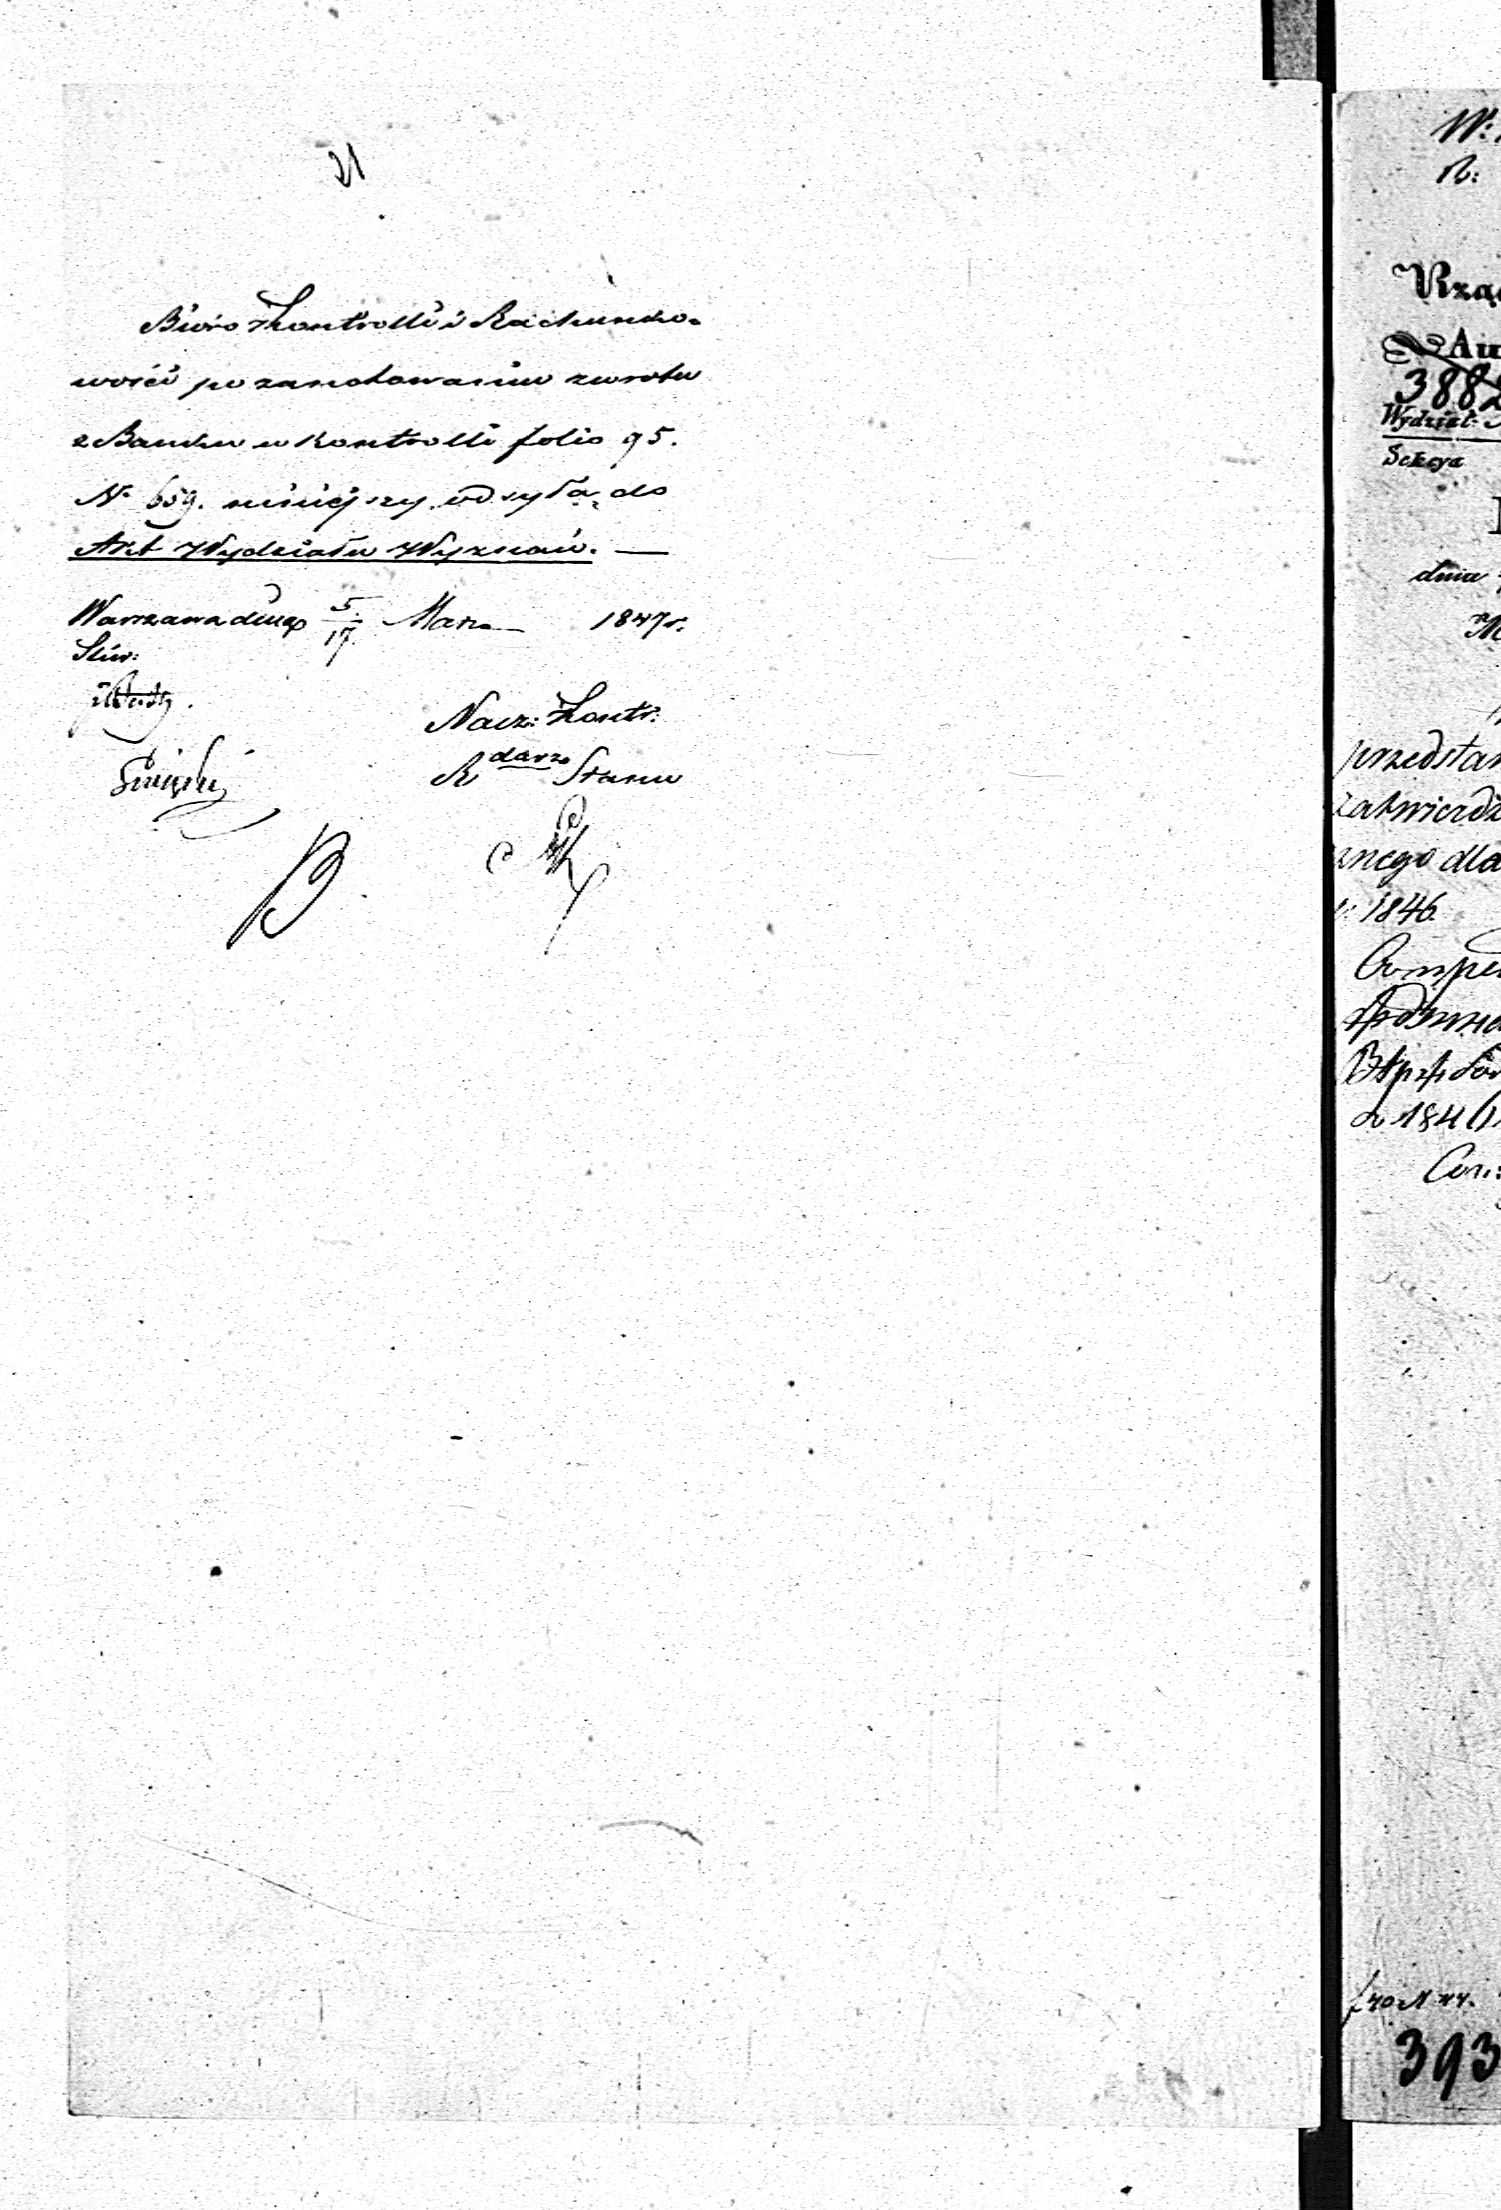 21
Biuro Kontrolli i Rachunko-
wości po zanotowaniu zwrotu
z Banku w Kontrolli folio 95.
N. 659. niniejszy odsyła do
Akt Wydziału Wyznań. —
Warszawa dnia 5/17 Marca 1847 r.
Nacz: Kontr:
R darz Stanu
N:
Rzą
Au
3882
Wydział
Sekcya
dnia
przedstaw
zatwierdz
znego dla
1846.
393